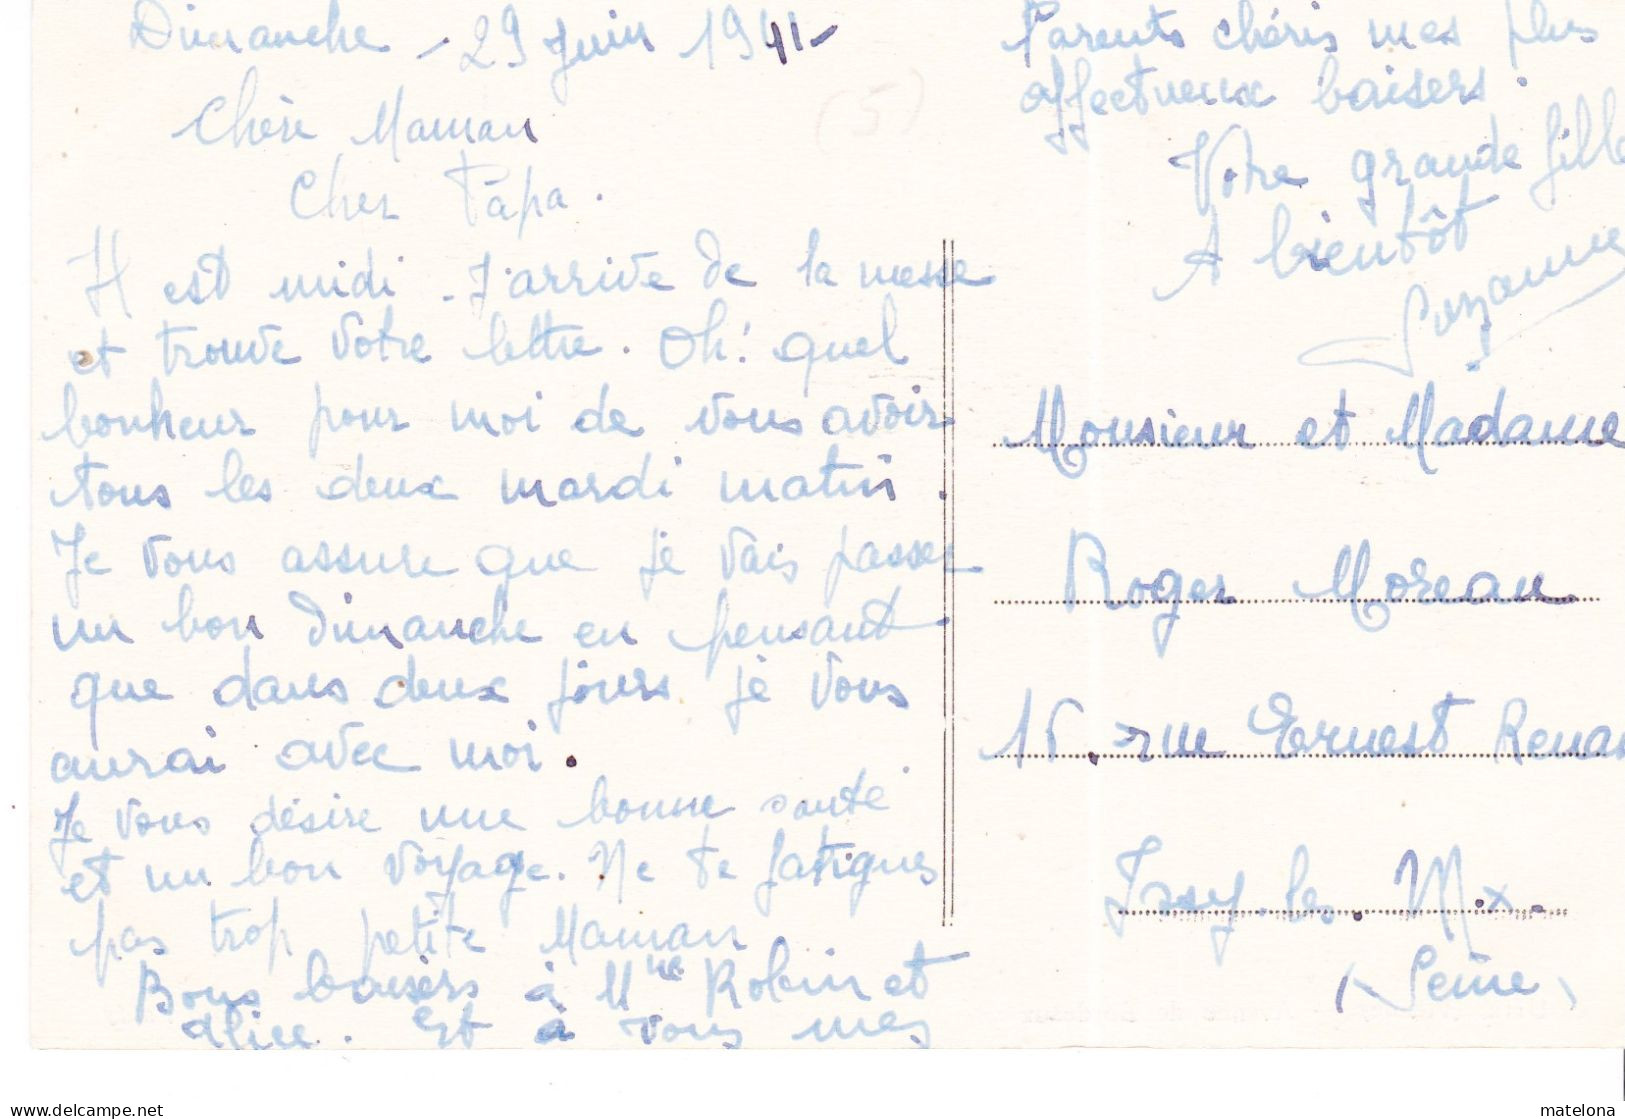 Dimanche - 29 Juin 1941-
Chère Maman
Cher Papa.
Il est midi - J'arrive de la messe
et trouve votre lettre. Oh! quel
bonheur pour moi de vous avoir
tous les deux mardi matin.
Je vous assure que je vais passer
un bon dimanche en pensant
que dans deux jours je vous
aurai avec moi.
Je vous désire une bonne santé
et un bon voyage. Ne te fatigues
pas trop petite Maman
Bons baisers à Mme Robin et
Alice. Et à vous mes
Parents chéris mes plus
affectueux baisers.
Votre grande fille
A bientôt
Suzanne
(5)
Monsieur et Madame
Roger Moreau
15. rue Ernest Renan
Issy. les. Mx.
(Seine)
matelona